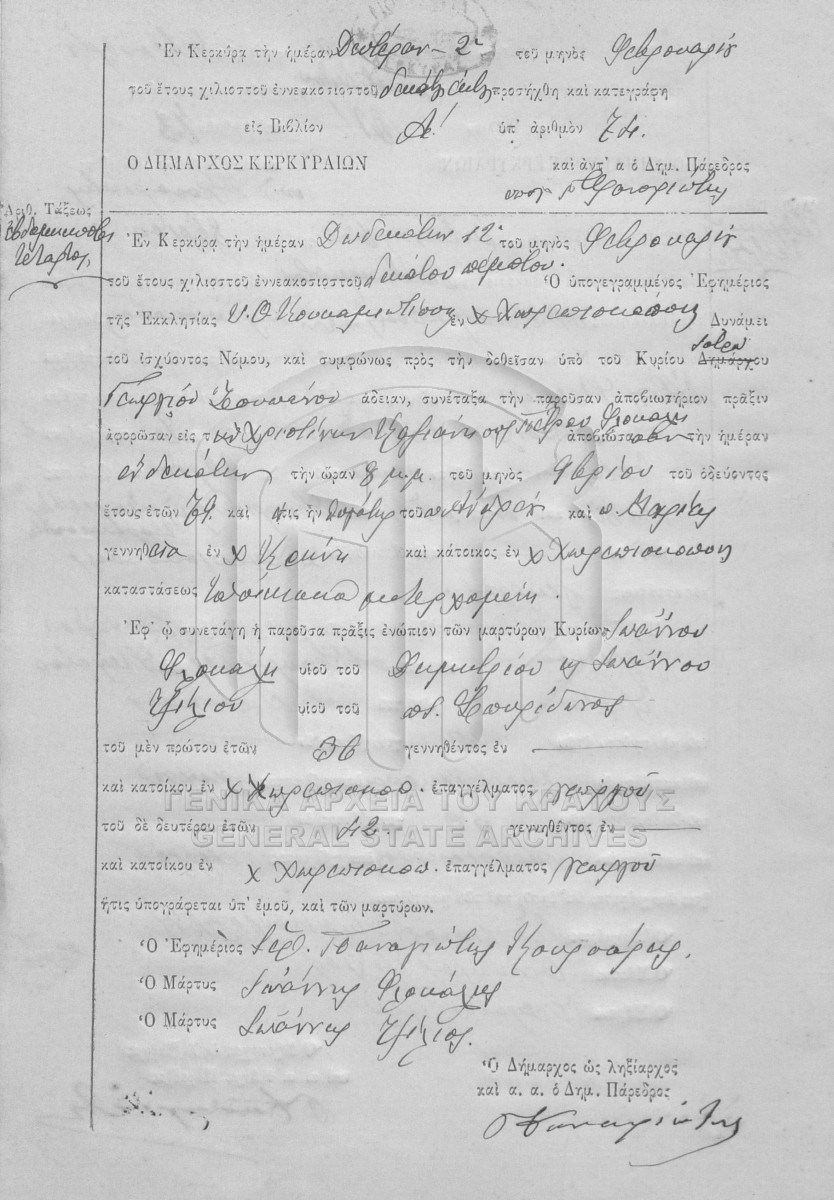 Ἐν Κερκύρᾳ τὴν ἡμέραν Δευτέραν - 2α τοῦ μηνὸς Φεβρουαρίου
τοῦ ἔτους χιλιοστοῦ ἐννεακοσιοστοῦ δεκάτου προσήχθη καὶ κατεγράφη
εἰς Βιβλίον Α! ὑπ' ἀριθμὸν 74.
Ὁ ΔΗΜΑΡΧΟΣ ΚΕΡΚΥΡΑΙΩΝ καὶ ἀντ' α ὁ Δημ. Πάρεδρος
υπογ
Ἀριθ. Τάξεως
τέταρτος
Ἐν Κερκύρᾳ τὴν ἡμέραν Δωδεκάτην 12α τοῦ μηνὸς Φεβρουαρίου
τοῦ ἔτους χιλιοστοῦ ἐννεακοσιοστοῦ δεκάτου πέμπτου. Ὁ ὑπογεγραμμένος Ἐφημέριος
τῆς Ἐκκλησίας Υ. Θ. ἐν χ Χωρεπισκόπους Δυνάμει
τοῦ ἰσχύοντος Νόμου, καὶ συμφώνως πρὸς τὴν δοθεῖσαν ὑπὸ τοῦ Κυρίου Δημάρχου ἰατροῦ
Γεωργίου ἄδειαν, συνέταξα τὴν παροῦσαν ἀποβιωτήριον πρᾶξιν
ἀφορῶσαν εἰς τὴν Χριστίναν Πέτρου Φλοκάλη ἀποβιώσασαν τὴν ἡμέραν
ἑνδεκάτην τὴν ὥραν 8 μ.μ. τοῦ μηνὸς Φβρίου τοῦ ὁδεύοντος
ἔτους ἐτῶν 79 καὶ τις ἦν θυγάτηρ τοῦ π. Ἀνδρέου καὶ π. Μαρίας
γεννηθεῖσα ἐν χ Κρήνη καὶ κάτοικος ἐν χ Χωρεπισκόπους
καταστάσεως μετερχομένη.
Ἐφ' ᾧ συνετάγη ἡ παροῦσα πρᾶξις ἐνώπιον τῶν μαρτύρων Κυρίων Ἰωάννου
Φλοκάλη υἱοῦ τοῦ Δημητρίου κ Ἰωάννου
Τζίλιου υἱοῦ τοῦ ποτ. Σπυρίδωνος
τοῦ μὲν πρώτου ἐτῶν 36 γεννηθέντος ἐν
καὶ κατοίκου ἐν χ Χωρεπισκοπ. ἐπαγγέλματος γεωργοῦ
ΓΕΝΙΚΑ ΑΡΧΕΙΑ ΤΟΥ ΚΡΑΤΟΥΣ
τοῦ δὲ δευτέρου ἐτῶν 42 γεννηθέντος ἐν
GENERAL STATE ARCHIVES
καὶ κατοίκου ἐν χ Χωρεπισκοπ. ἐπαγγέλματος γεωργοῦ
ἥτις ὑπογράφεται ὑπ' ἐμοῦ, καὶ τῶν μαρτύρων.
Ὁ Ἐφημέριος Ἱερ. Παναγιώτης Κουρσάρης.
Ὁ Μάρτυς Ἰωάννης Φλοκάλης
Ὁ Μάρτυς Ἰωάννης Τζίλιος.
Ὁ Δήμαρχος ὡς ληξίαρχος
καὶ α. α. ὁ Δημ. Πάρεδρος